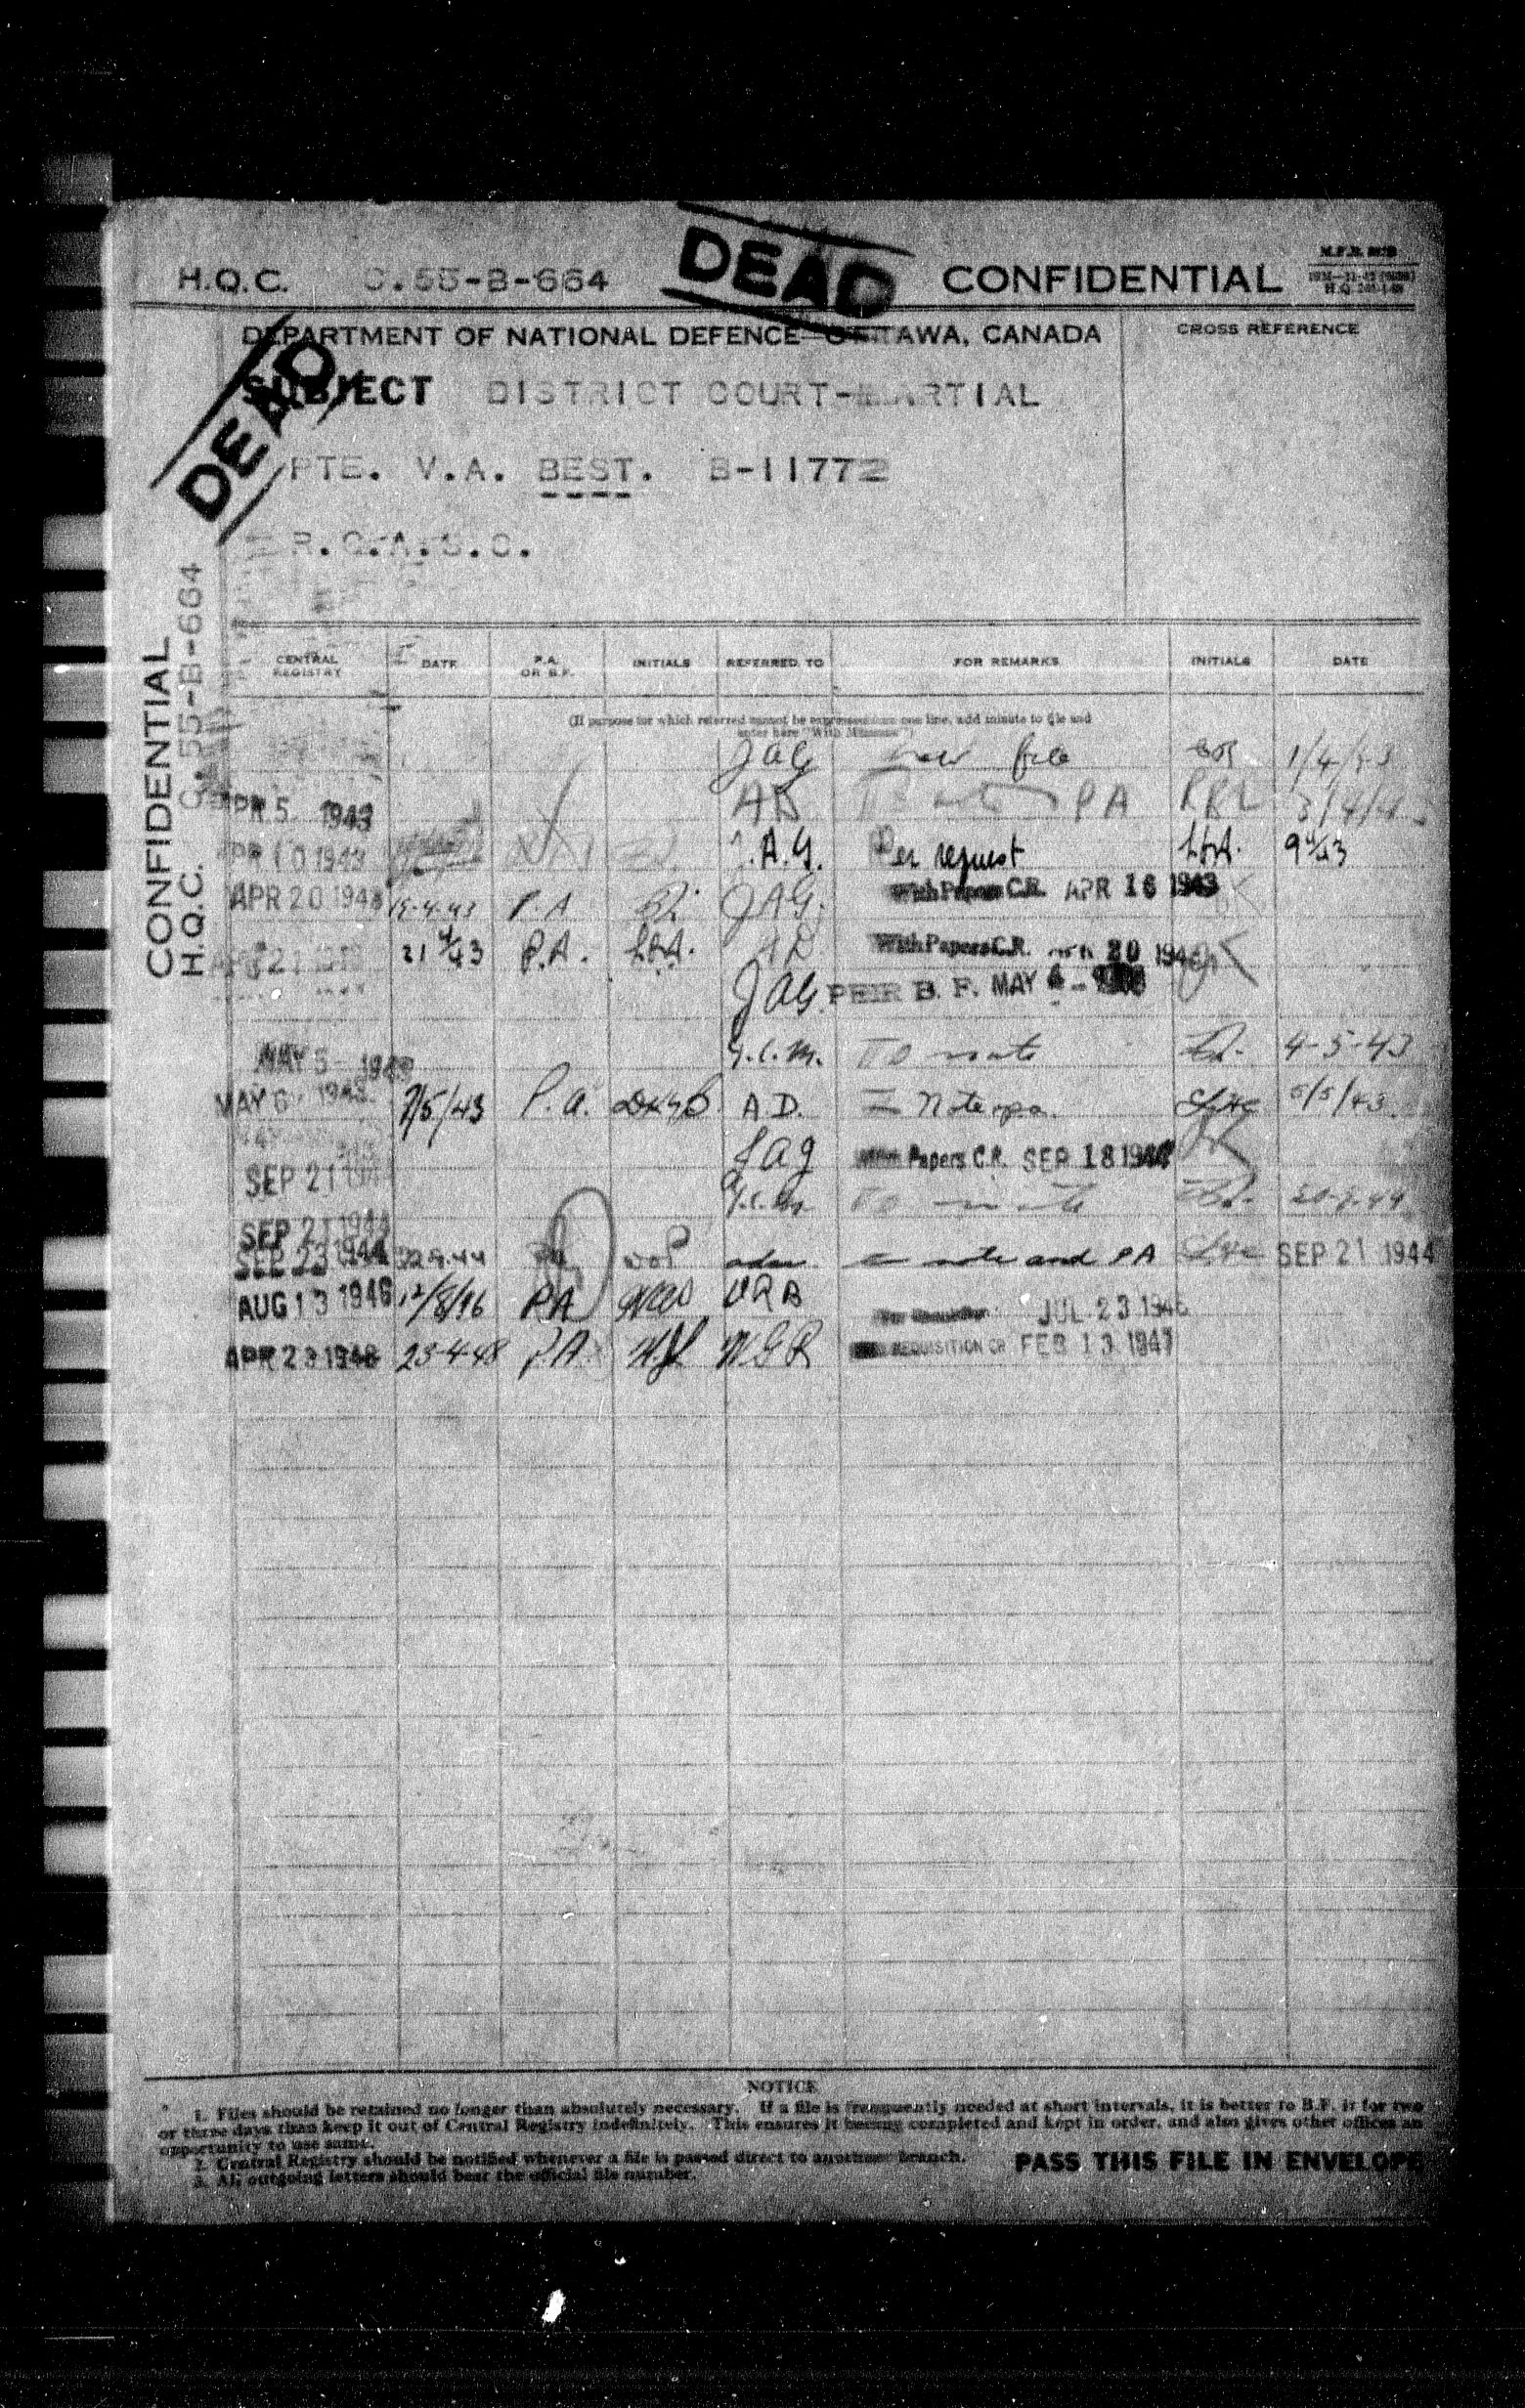 DEAD
H.Q.C. C.55-B-664 CONFIDENTIAL
DEPARTMENT OF NATIONAL DEFENCE—OTTAWA, CANADA
CROSS REFERENCE
DEAD
SUBJECT DISTRICT COURT-MARTIAL
PTE. V.A. BEST. B-11772
R.C.A.S.C.
CONFIDENTIAL
H.Q.C. C.55-B-664
CENTRAL REGISTRY DATE P.A. OR B.F. INITIALS REFERRED TO FOR REMARKS INITIALS DATE
(If purpose for which referred cannot be expressed on one line, add minute to file and
enter here "With Minutes")
JAG new file 1/4/43
APR 5 1943 AD PA RRL 3/4/4
APR 10 1943 J.A.G. Per request 9 4/43
APR 20 1943 19-4-43 P.A JAG. With Papers C.R. APR 16 1943
21 4/43 P.A. AD With Papers C.R. 20 194
JAG. PEIR B. F. MAY
MAY 5 - 1943 J.C.M. To note 4-5-43
MAY 6 1943 7/5/43 P.A. A.D. Note & pa. 5/5/43
JAG Papers C.R. SEP 18 1944
SEP 21 J.C.M. To note 20-9-44
SEP 21 1944
SEP 23 1944 22.9.44 adm to note and PA SEP 21 1944
AUG 13 1946 12/8/46 PA VRB JUL 23 1946
APR 23 1948 23-4-48 P.A. WGR REQUISITION CR FEB 13 1947
NOTICE
1. Files should be retained no longer than absolutely necessary. If a file is frequently needed at short intervals, it is better to B.F. it for two
or three days than keep it out of Central Registry indefinitely. This ensures it being completed and kept in order, and also gives other offices an
opportunity to use same.
2. Central Registry should be notified whenever a file is passed direct to another branch.
3. All outgoing letters should bear the official file number.
PASS THIS FILE IN ENVELOPE